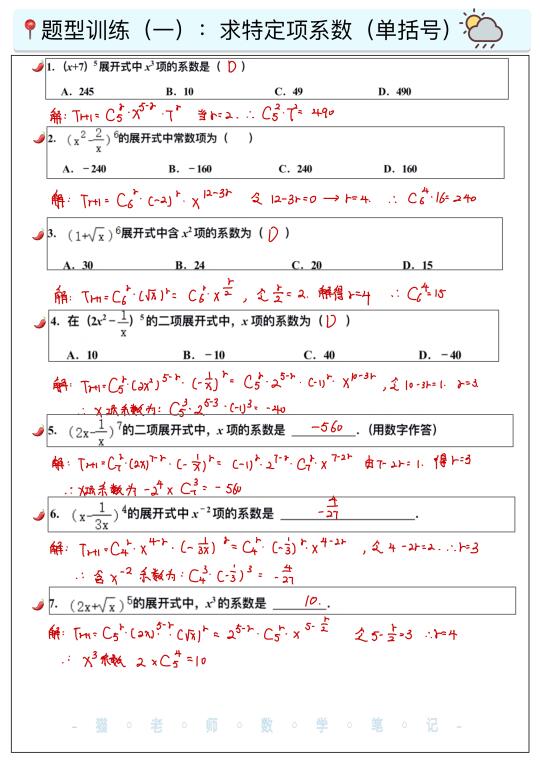 题型训练（一）：求特定项系数（单括号）
1.（x+7）⁵展开式中 x³项的系数是（ D ）
A．245 B．10 C．49 D．490
解: Tr+1=C₅ʳ·x⁵⁻ʳ·7ʳ 当r=2. ∴ C₅²·7²=490
2.（x²-2/x）⁶的展开式中常数项为（ ）
A．－240 B．－160 C．240 D．160
解: Tr+1=C₆ʳ·(-2)ʳ·x¹²⁻³ʳ 令 12-3r=0 → r=4. ∴ C₆⁴·16=240
3.（1+√x）⁶展开式中含 x²项的系数为（ D ）
A．30 B．24 C．20 D．15
解: Tr+1=C₆ʳ·(√x)ʳ= C₆ʳ·x^(r/2) , 令 r/2=2. 解得r=4 ∴ C₆⁴=15
4. 在（2x²－1/x）⁵的二项展开式中，x 项的系数为（ D ）
A．10 B．－10 C．40 D．－40
解: Tr+1=C₅ʳ·(2x²)⁵⁻ʳ·(-1/x)ʳ= C₅ʳ·2⁵⁻ʳ·(-1)ʳ·x¹⁰⁻³ʳ ,令10-3r=1. r=3.
∴ x项系数为: C₅³·2⁵⁻³·(-1)³=-40
5.（2x-1/x）⁷的二项展开式中，x 项的系数是 -560 .（用数字作答）
解: Tr+1=C₇ʳ·(2x)⁷⁻ʳ·(-1/x)ʳ= (-1)ʳ·2⁷⁻ʳ·C₇ʳ·x⁷⁻²ʳ 由7-2r=1. 得r=3
∴x项系数为 -2⁴×C₇³=-560
6.（x-1/3x）⁴的展开式中 x⁻²项的系数是 -4/27 .
解: Tr+1=C₄ʳ·x⁴⁻ʳ·(-1/3x)ʳ=C₄ʳ·(-1/3)ʳ·x⁴⁻²ʳ ,令 4-2r=-2. ∴r=3
∴ 含 x⁻² 系数为: C₄³·(-1/3)³=-4/27
7.（2x+√x）⁵的展开式中，x³的系数是 10. .
解: Tr+1=C₅ʳ·(2x)⁵⁻ʳ·(√x)ʳ=2⁵⁻ʳ·C₅ʳ·x^(5-r/2) 令5-r/2=3 ∴r=4
∴ x³系数 2×C₅⁴=10
- 猫 ◦ 老 ◦ 师 ◦ 数 ◦ 学 ◦ 笔 ◦ 记 -